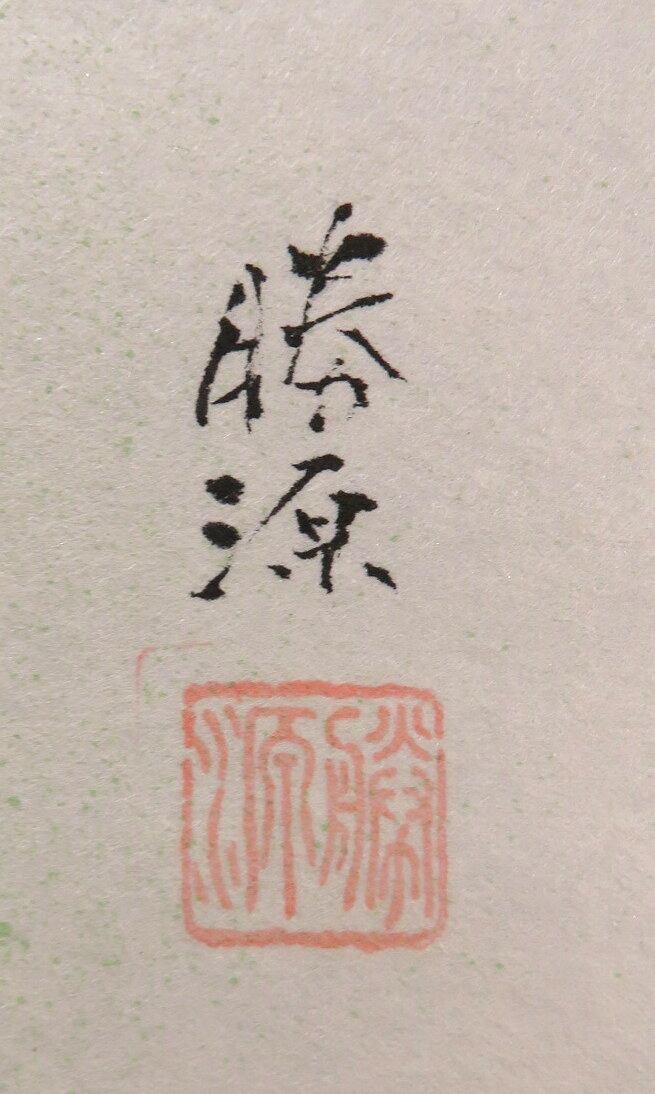 勝
源
勝源